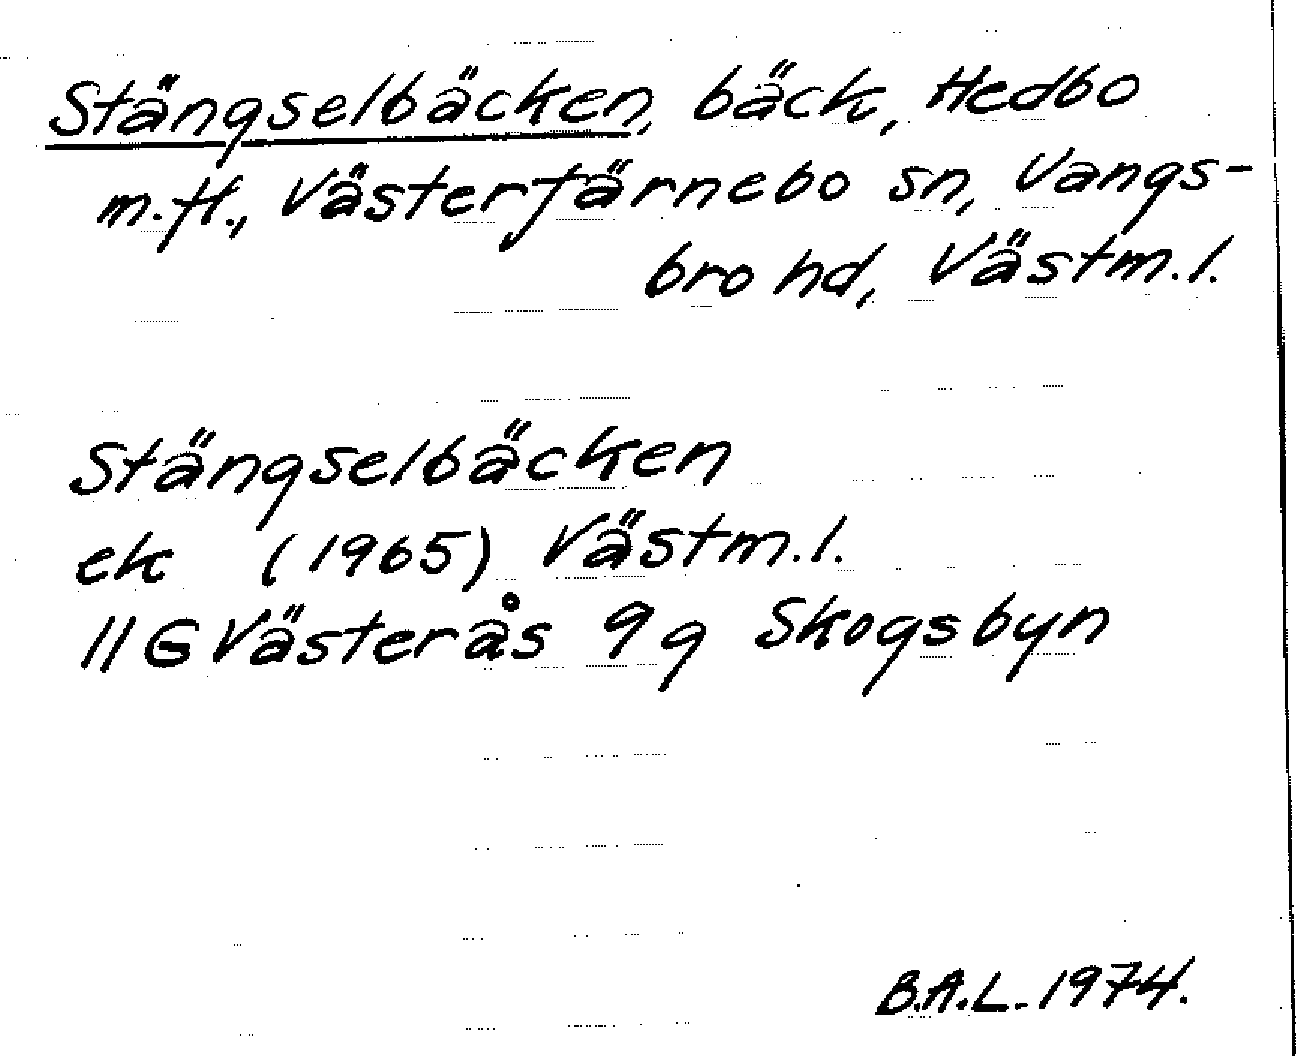 Stängselbäcken, bäck, Hedbo
m.fl., Västerfärnebo sn, Vangs-
bro hd, Västm.l.
Stängselbäcken
ek (1965) Västm.l.
11G Västerås 9g Skogsbyn
B.A.L. 1974.